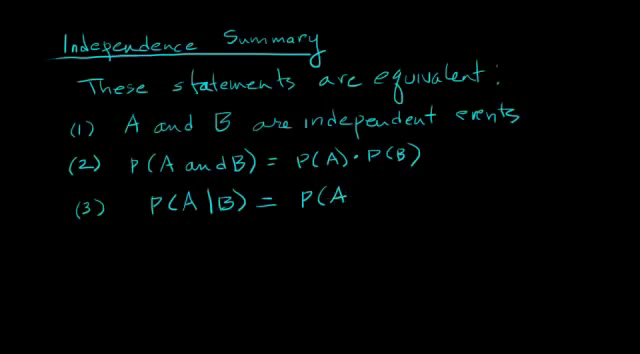 Independence Summary
These statements are equivalent:
(1) A and B are independent events
(2) P(A and B) = P(A) · P(B)
(3) P(A|B) = P(A